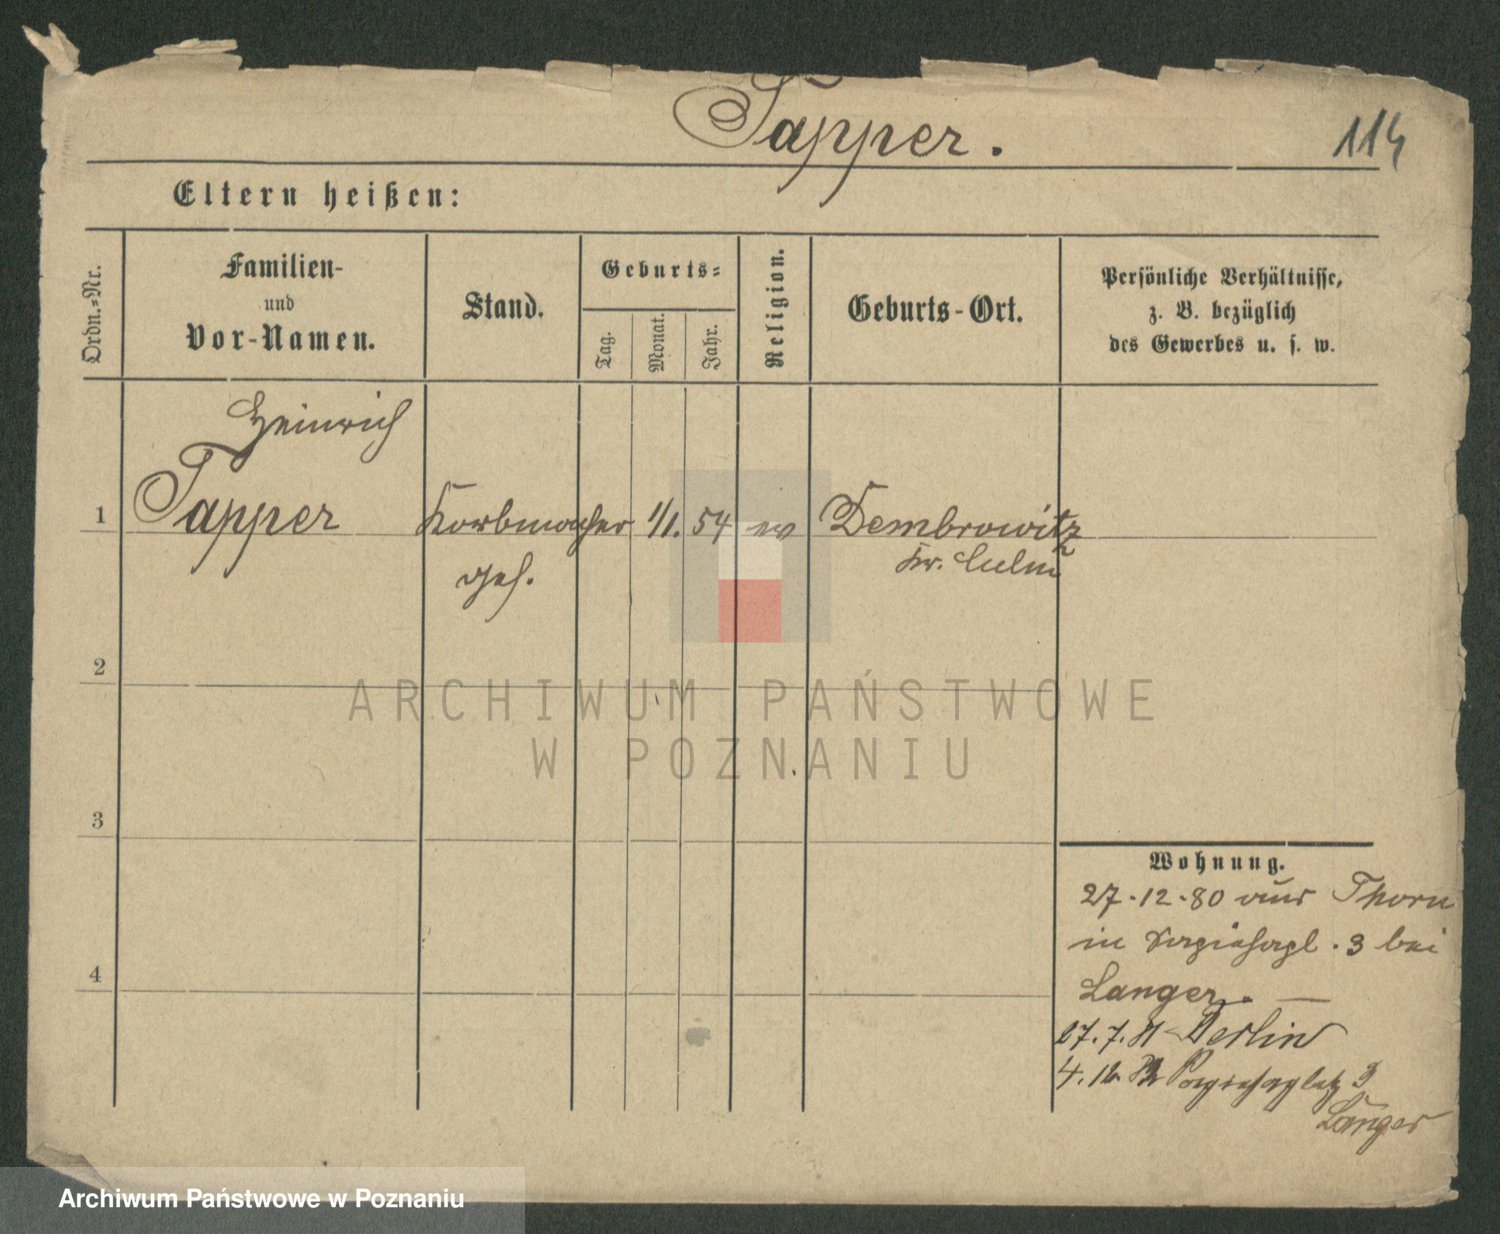 Tapper.
114
Eltern heißen:
Ordn.-Nr.
Familien-
und
Vor-Namen.
Stand.
Geburts-
Tag.
Monat.
Jahr.
Religion.
Geburts-Ort.
Persönliche Verhältnisse,
z. B. bezüglich
des Gewerbes u. s. w.
Heinrich
1 Tapper Korbmacher 1/1. 54 ev Dembrowitz
geh. Kr. Culm
2
3
4
ARCHIWUM PAŃSTWOWE
W POZNANIU
Wohnung.
27.12.80 aus Thorn
in 3 bei
Langer. —
27.7. Berlin
4.12. 3
Langer
Archiwum Państwowe w Poznaniu